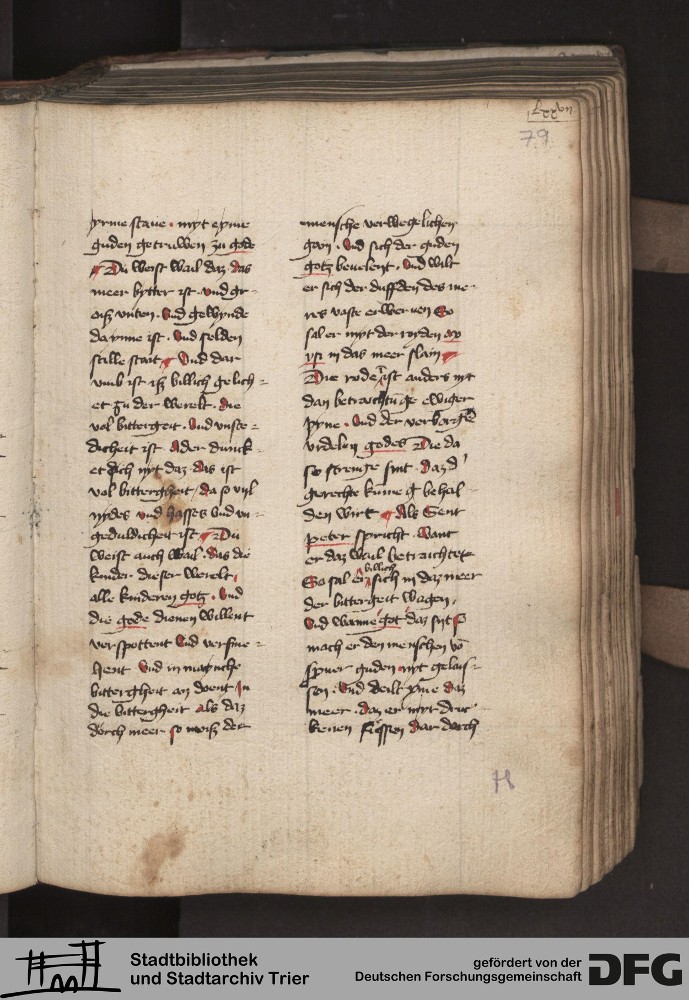 lxxvii
79
yrme staue · myt eyme
guden getruwen zu gode
Du weist wail daz das
meer bytter ist · vnd gr-
oiß vnten · vnd gewynde
da ynne ist · vnd selden
stille stait Vnd dar
vmb ist iß billich gelich
et zu der werelt · die
vol bittergeit · vnd vnste
dicheit ist Ader dunck
et dich nyt daz das ist
vol bittergheit / da so vyl
nydes vnd hasses vnd vn
geduldicheit ist Du
weist auch wail · das die
kinder dieser werelt
alle kinderen gotz · vnd
die gode dienen willent
verspottent vnd versme
hent vnd in manche
bittergheit an doent In
die bittergheit als daz
dorch meer so moiß der
mensche verweglichen
gain · vnd sich der guden
gotz beuelent · vnd wilt
er sich der duffden des me
res vaste erweruen So
sal er myt der royden
in das meer slain
Die rode ist anders nyt
dan betrachtunge ewiger
pyne · vnd der verborgen
vrdelen godes Die da
so strenge sint · daz d
gerechte kume behal
den wirt Als Sent
peter spricht · Want
er daz wail betraichtet
So sal er billich sich in daz meer
der bittergeit wagen
vnd wanne got daz syt So
mach er den menschen
syner guden nyt gelais
sen · vnd deilt yme daz
meer · daz er myt druc
kenen fuessen dar dorch
78
Stadtbibliothek
und Stadtarchiv Trier
gefördert von der
Deutschen Forschungsgemeinschaft
DFG